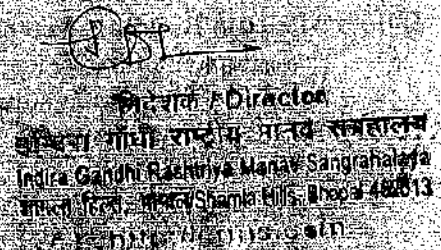 निदेशक / Director
इन्दिरा गाँधी राष्ट्रीय मानव संग्रहालय
Indira Gandhi Rashtriya Manav Sangrahalaya
शामला हिल्स, भोपाल/Shamla Hills, Bhopal 462013